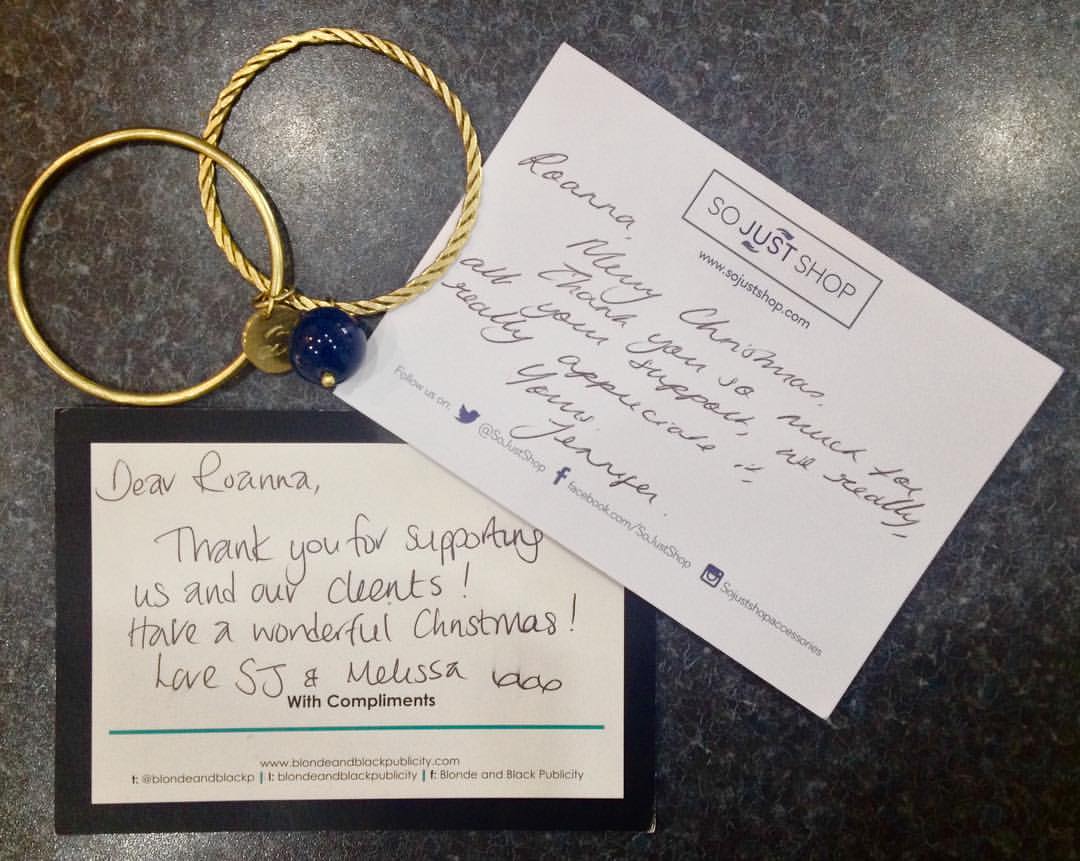 Roanna,
Merry Christmas.
Thank you so much for
all your support, we really,
really appreciate it
Yours,
Jennifer.
SO JUST SHOP
www.sojustshop.com
Follow us on:
@SoJustShop
facebook.com/SoJustShop
Sojustshopaccessories
Dear Roanna,
Thank you for supporting
us and our clients!
Have a wonderful Christmas!
Love SJ & Melissa xxx
With Compliments
www.blondeandblackpublicity.com
t: @blondeandblackp | I: blondeandblackpublicity | f: Blonde and Black Publicity